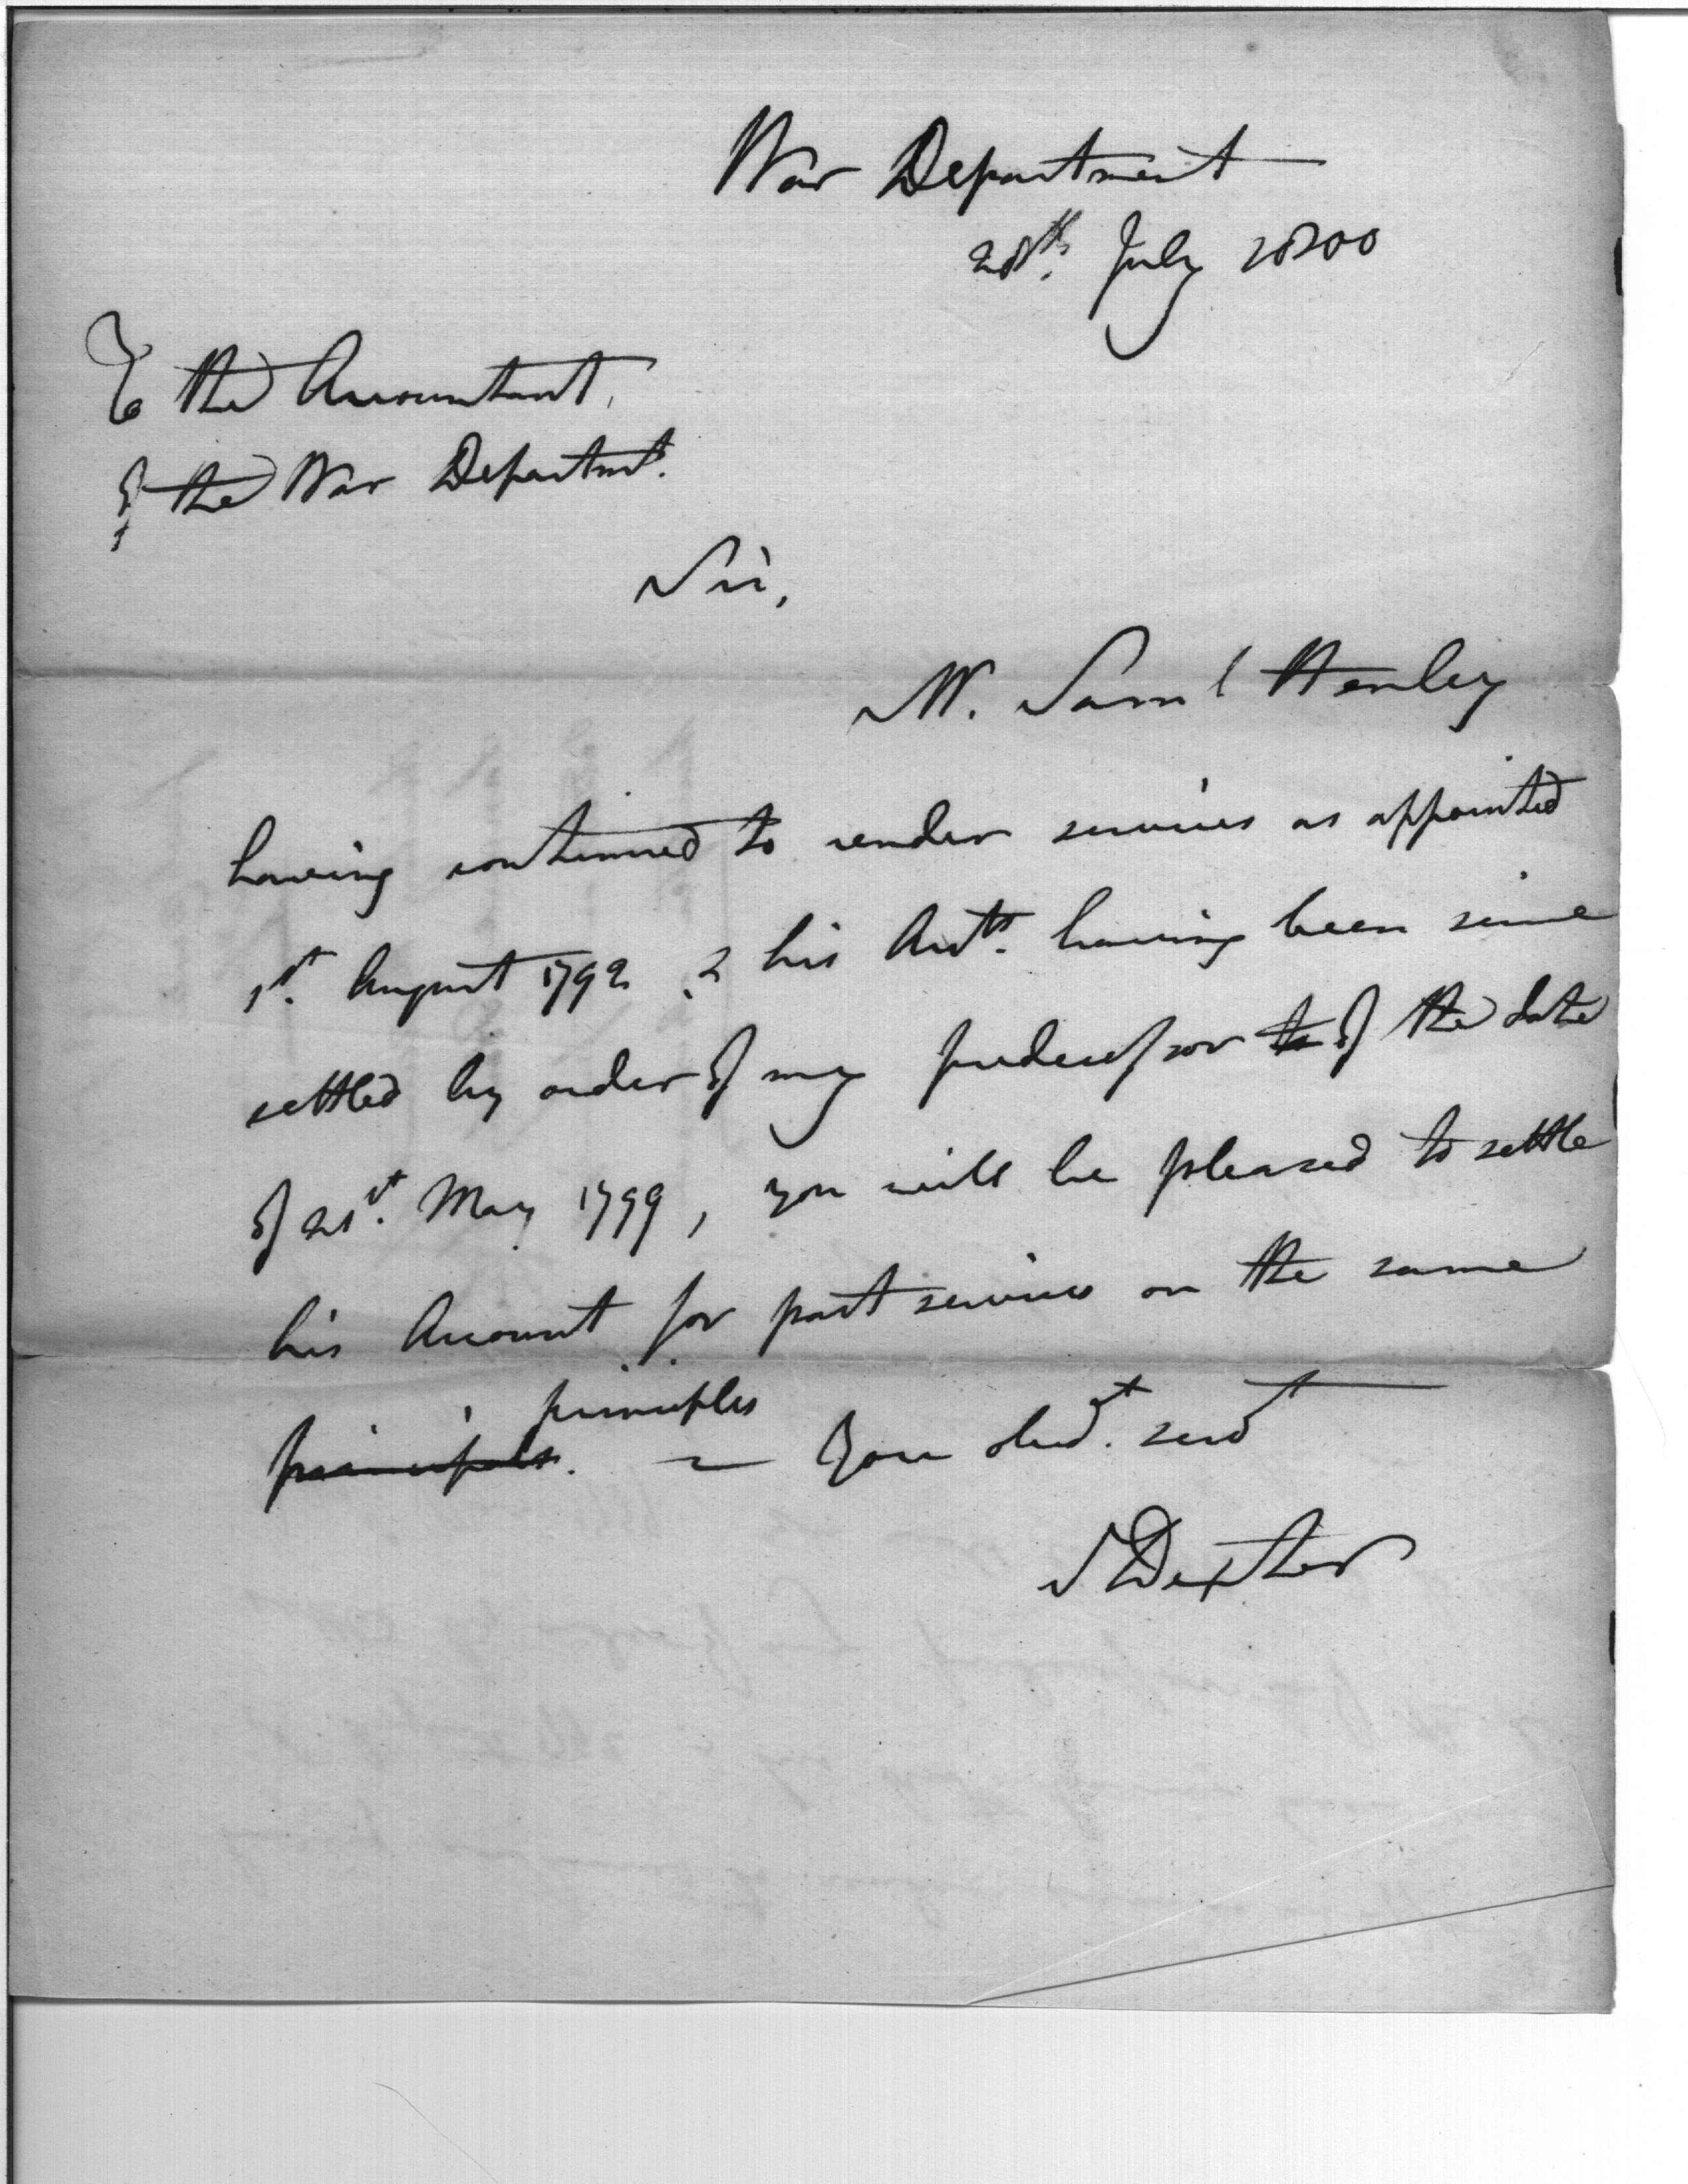 War Department
28th. July 1800
To the Accountant,
of the War Departmt.
Sir,
Mr. Saml Henley
having continued to render services as appointed
1st. August 1792 & his Accts. having been since
settled by order of my predecessor to of the date
of 21st. May 1799, you will be pleased to settle
his Account for past services on the same
principles
principals. — Your obedt. servt
S Dexter